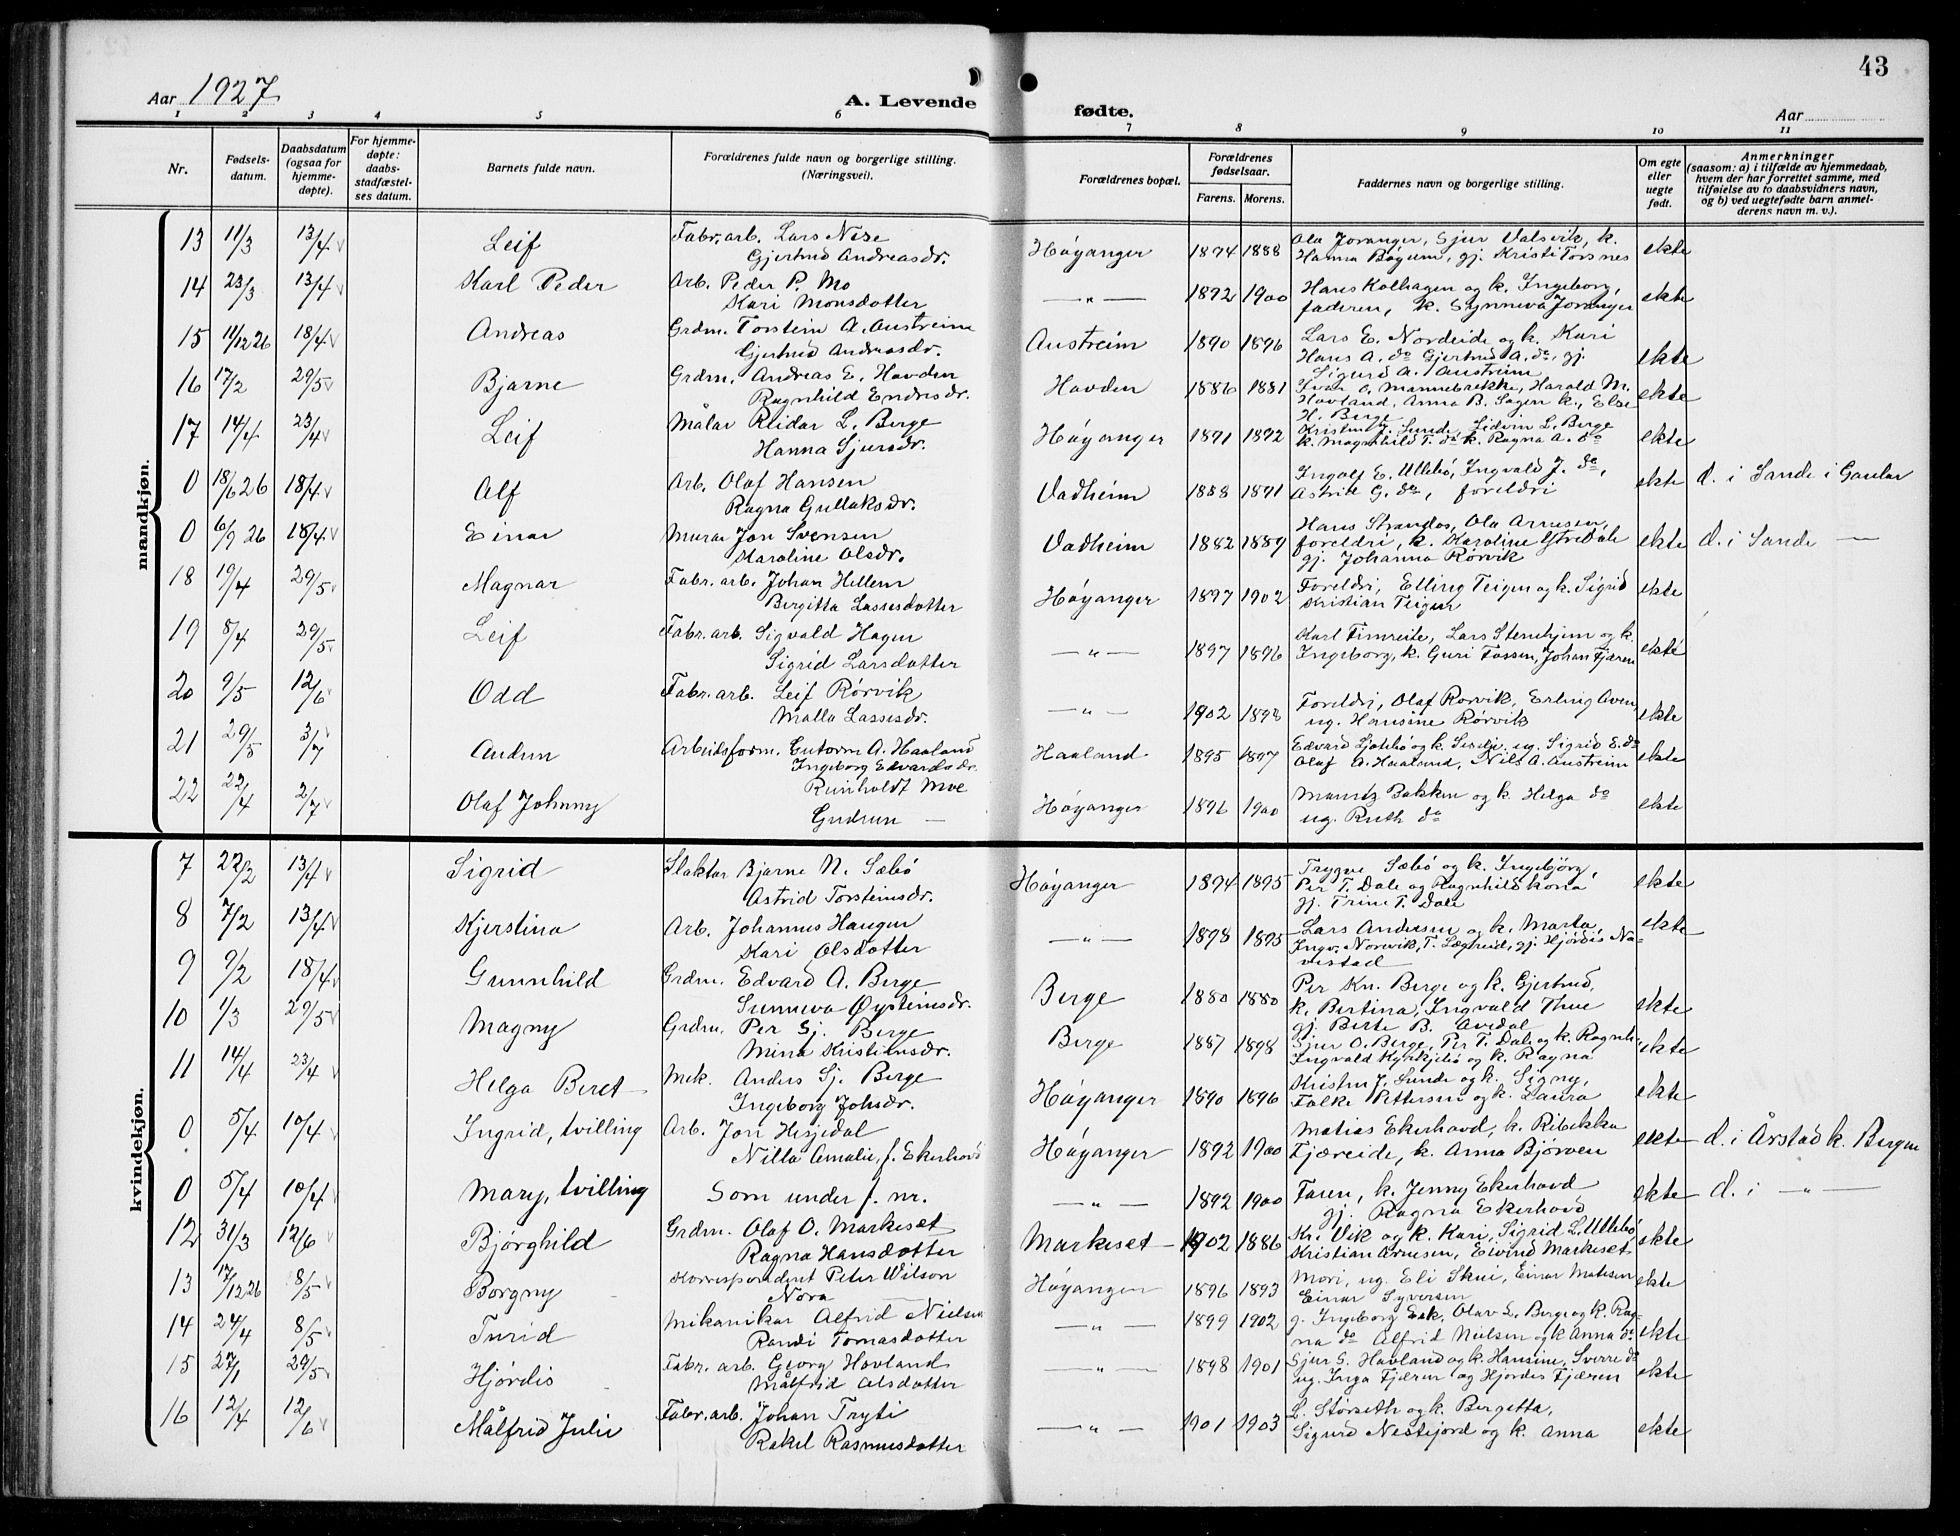 43
Aar 1927
A. Levende fødte.
Aar
1 2 3 4 5 6 7 8 9 10 11
Nr. Fødsels-datum. Daabsdatum (ogsaa for hjemme-døpte). For hjemme-døpte: daabs-stadfæstel-ses datum. Barnets fulde navn. Forældrenes fulde navn og borgerlige stilling. (Næringsvei). Forældrenes bopæl. Forældrenes fødselsaar. Farens. Morens. Faddernes navn og borgerlige stilling. Om egte eller uegte født. Anmerkninger (saasom: a) i tilfælde av hjemmedaab, hvem der har forrettet samme, med tilføielse av to daabsvidners navn, og b) ved uegtefødte barn anmel-derens navn m. v.).
mandkjøn.
13 11/3 13/4 Leif Fabr. arb. Lars Nese Høyanger 1894 1888 Ola Joranger, Sjur Valsvik, k. ekte
Gjertrud Andreasdr. Hanna Bøyum, gj. Kristi Torsnes
14 23/3 13/4 Karl Peder Arb. Peder P. Mo —"— 1892 1900 Hans Kolhagen og k. Ingeborg, ekte
Kari Monsdotter faderen, k. Synneva Joranger
15 11/12 26 18/4 Andreas Grdm. Torstein A. Austreim Austreim 1890 1896 Lars E. Nordeide og k. Kari ekte
Gjertrud Andreasdr. Hans A. do Gjertrud A. do, gj.
Sigurd A. Austreim
16 17/2 29/5 Bjarne Grdm. Andreas E. Hovden Hovden 1886 1881 Ivar O. Mannebrekke, Harold M. ekte
Ragnhild Endresdr. Hovland, Anna B. Sagen k., Else
H. Berge
17 14/4 23/4 Leif Målar Reidar L. Berge Høyanger 1891 1892 Kristen J. Sunde, Sidern L. Berge ekte
Hanna Sjursdr. k. Magnhild T. do k. Ragna A. do
0 18/6 26 18/4 Alf Arb. Olaf Hansen Vadheim 1888 1891 Ingolf E. Ullebø, Ingvald J. do, ekte d. i Sande i Gaular
Ragna Gullaksdr. Astrid G. do, foreldri
0 6/9 26 18/4 Einar Murar Jon Svensen Vadheim 1882 1889 Hans Strandos, Ola Arnesen, ekte d. i Sande —
Karoline Olsdr. foreldri, k. Karoline Ytredale
gj. Johanna Rørvik
18 19/4 29/5 Magnar Fabr. arb. Johan Hellem Høyanger 1897 1902 Foreldri, Elling Teigen og k. Sigrid ekte
Bergitta Lassesdotter Kristian Teigen
19 8/4 29/5 Leif Fabr. arb. Sigvald Hagen —"— 1897 1896 Karl Timreite, Lars Stenehjem og k. ekte
Sigrid Larsdotter Ingeborg, k. Guri Fossen, Johan Fjæren
20 9/5 12/6 Odd Fabr. arb. Leif Rørvik —"— 1902 1898 Foreldri, Olaf Rørvik, Erling Aven, ekte
Malla Lassesdr. ug. Hansine Rørvik
21 29/5 3/7 Audun Arbeidsform. Gutorm A. Haaland Haaland 1895 1897 Edvard Ljotebø og k. Sesilie, ug. Sigrid E. do ekte
Ingeborg Edvardsdr. Olaf A. Haaland, Nils A. Austreim
22 22/4 2/7 Olaf Johnny Reinholdt Moe Høyanger 1896 1900 Mauritz Bakken og k. Helga do ekte
Gudrun — ug. Ruth do
kvindekjøn.
7 22/2 13/4 Sigrid Slaktar Bjarne N. Sæbø Høyanger 1894 1895 Trygve Sæbø og k. Ingebjørg, ekte
Astrid Torsteinsdr. Per T. Dale og Ragnhild kona
gj. Trine T. Dale
8 7/2 13/4 Kjerstina Arb. Johannes Haugen —"— 1898 1895 Lars Andersen og k. Marta, ekte
Kari Olsdotter Ingv. Norvik, T. Lægreid, gj. Hjørdis Na-
vestad
9 9/2 18/4 Gunnhild Grdm. Edvard A. Berge Berge 1880 1880 Per Kn. Berge og k. Gjertrud, ekte
Sunneva Øysteinsdr. k. Bertina, Ingvald Thue
gj. Berte B. Avedal
10 1/3 29/5 Magny Grdm. Per Sj. Berge Berge 1887 1898 Sjur O. Berge, Per T. Dale og k. Ragnh. ekte
Mina Kristiansdr. Ingvald Kyrkjebø og k. Ragna
11 14/4 23/4 Helga Beret Mek. Anders Sj. Berge Høyanger 1890 1896 Kristen J. Sunde og k. Signy, ekte
Ingeborg Johsdr. Falke Pettersen og k. Laura
0 5/4 10/4 Ingrid, tvilling Arb. Jon Hisjedal Høyanger 1892 1900 Matias Ekerhovd, k. Ribekka ekte d. i Årstad k. Bergen
Nilla Amalie, f. Ekerhovd Fjæreide, k. Anna Bjørven
0 5/4 10/4 Mary, tvilling Som under f. nr. —"— 1892 1900 Faren, k. Jenny Ekerhovd ekte d. i —"—
gj. Ragna Ekerhovd
12 31/3 12/6 Bjørghild Grdm. Olaf O. Markeset Markeset 1902 1886 Kr. Vik og k. Kari, Sigrid L. Ullebø ekte
Ragna Hansdotter Kristian Arnesen, Eivind Markeset
13 17/12 26 8/5 Borgny Korrespondent Peter Wilson Høyanger 1896 1893 Mori, ug. Eli Skui, Einar Matesen ekte
Nora — Einar Syversen
14 24/4 8/5 Turid Mikanikar Alfrid Nielsen —"— 1899 1902 g. Ingeborg Eek, Olav L. Berge og k. Rag- ekte
Randi Tomasdotter na do Alfrid Nielsen og k Anna do
15 27/1 29/5 Hjørdis Fabr. arb. Georg Hovland —"— 1898 1901 Sjur S. Hovland og k. Hansine, Sverre do ekte
Målfrid Olsdotter ug. Inga Fjæren og Hjørdis Fjæren
16 12/4 12/6 Målfrid Julie Fabr. arb. Johan Tryti —"— 1901 1903 L. Størseth og k. Bergetta, ekte
Rakel Rasmusdotter Sigurd Nesfjord og k. Anna